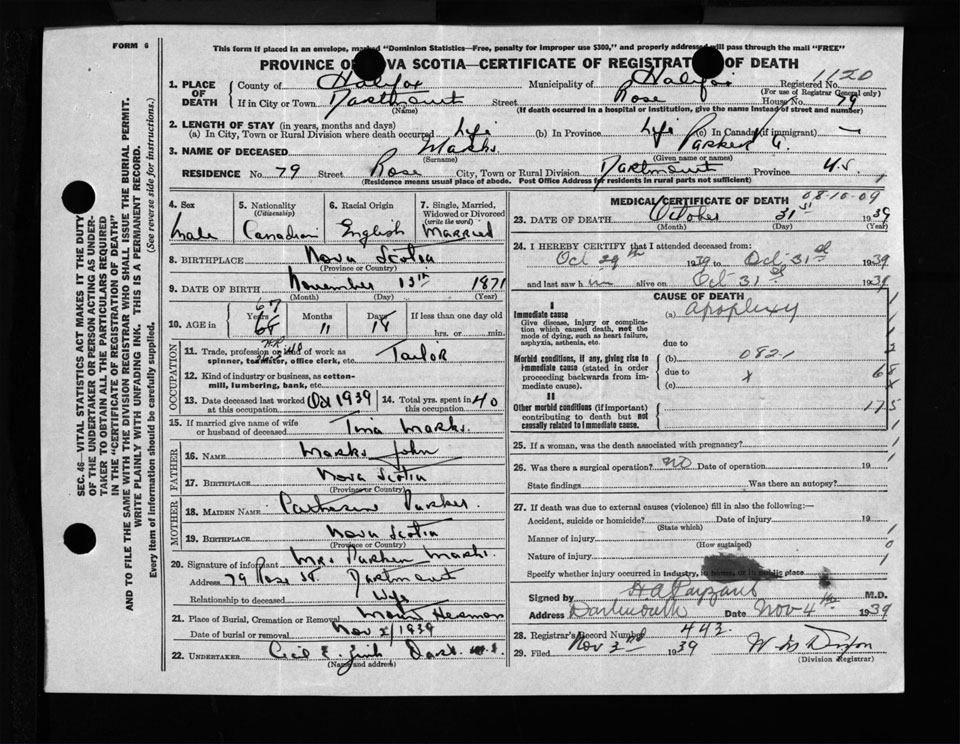 FORM 6
This form if placed in an envelope, marked "Dominion Statistics—Free, penalty for improper use $300," and properly addressed will pass through the mail "FREE"
PROVINCE OF NOVA SCOTIA—CERTIFICATE OF REGISTRATION OF DEATH
1120
1. PLACE OF DEATH County of Halifax Municipality of Halifax Registered No.
(For use of Registrar General only)
If in City or Town Dartmouth Street Rose House No. 79
(Name) (If death occurred in a hospital or institution, give the name instead of street and number)
2. LENGTH OF STAY (in years, months and days)
(a) In City, Town or Rural Division where death occurred Life (b) In Province Life (c) In Canada (if immigrant) —
3. NAME OF DECEASED Marks Parker G.
(Surname) (Given name or names)
RESIDENCE No. 79 Street Rose City, Town or Rural Division Dartmouth Province N.S.
(Residence means usual place of abode. Post Office Address for residents in rural parts not sufficient)
4. Sex 5. Nationality (Citizenship) 6. Racial Origin 7. Single, Married, Widowed or Divorced (write the word)
Male Canadian English Married
8. BIRTHPLACE Nova Scotia
(Province or Country)
9. DATE OF BIRTH November 13th 1871
(Month) (Day) (Year)
67
10. AGE in Years 68 Months 11 Days 18 If less than one day old
hrs. or min.
OCCUPATION
11. Trade, profession or kind of work as spinner, teamster, office clerk, etc. Tailor
12. Kind of industry or business, as cotton-mill, lumbering, bank, etc.
13. Date deceased last worked at this occupation Oct 1939 14. Total yrs. spent in this occupation 40
15. If married give name of wife or husband of deceased Tina Marks
FATHER
16. NAME Marks John
17. BIRTHPLACE Nova Scotia
(Province or Country)
MOTHER
18. MAIDEN NAME Catherine Parker
19. BIRTHPLACE Nova Scotia
(Province or Country)
20. Signature of informant Mrs Parker Marks
Address 79 Rose St. Dartmouth
Relationship to deceased Wife
21. Place of Burial, Cremation or Removal Mount Hermon
Date of burial or removal Nov 2/1939
22. UNDERTAKER Cecil E. Zink Dart. N.S.
(Name and address)
MEDICAL CERTIFICATE OF DEATH 08-10-09
23. DATE OF DEATH October 31st 1939
(Month) (Day) (Year)
24. I HEREBY CERTIFY that I attended deceased from:
Oct 29th 1939 to Oct 31st 1939
and last saw him alive on Oct 31st 1939
CAUSE OF DEATH
I
Immediate cause (a) Apoplexy
Give disease, injury or complication which caused death, not the mode of dying, such as heart failure, asphyxia, asthenia, etc.
due to
Morbid conditions, if any, giving rise to immediate cause (stated in order proceeding backwards from immediate cause). (b) 082-1
due to x
(c)
II
Other morbid conditions (if important) contributing to death but not causally related to immediate cause.
175
25. If a woman, was the death associated with pregnancy?
26. Was there a surgical operation? no Date of operation 19
State findings Was there an autopsy?
27. If death was due to external causes (violence) fill in also the following:—
Accident, suicide or homicide? Date of injury 19
(State which)
Manner of injury
(How sustained)
Nature of injury
Specify whether injury occurred in industry, in home, or in public place
Signed by H A Payzant M.D.
Address Dartmouth Date Nov 4th 1939
28. Registrar's Record Number 442.
29. Filed Nov 3rd 1939
(Division Registrar)
SEC. 46—VITAL STATISTICS ACT MAKES IT THE DUTY
OF THE UNDERTAKER OR PERSON ACTING AS UNDER-
TAKER TO OBTAIN ALL THE PARTICULARS REQUIRED
IN THE "CERTIFICATE OF REGISTRATION OF DEATH"
AND TO FILE THE SAME WITH THE DIVISION REGISTRAR WHO SHALL ISSUE THE BURIAL PERMIT.
WRITE PLAINLY WITH UNFADING INK. THIS IS A PERMANENT RECORD.
Every item of information should be carefully supplied. (See reverse side for instructions.)